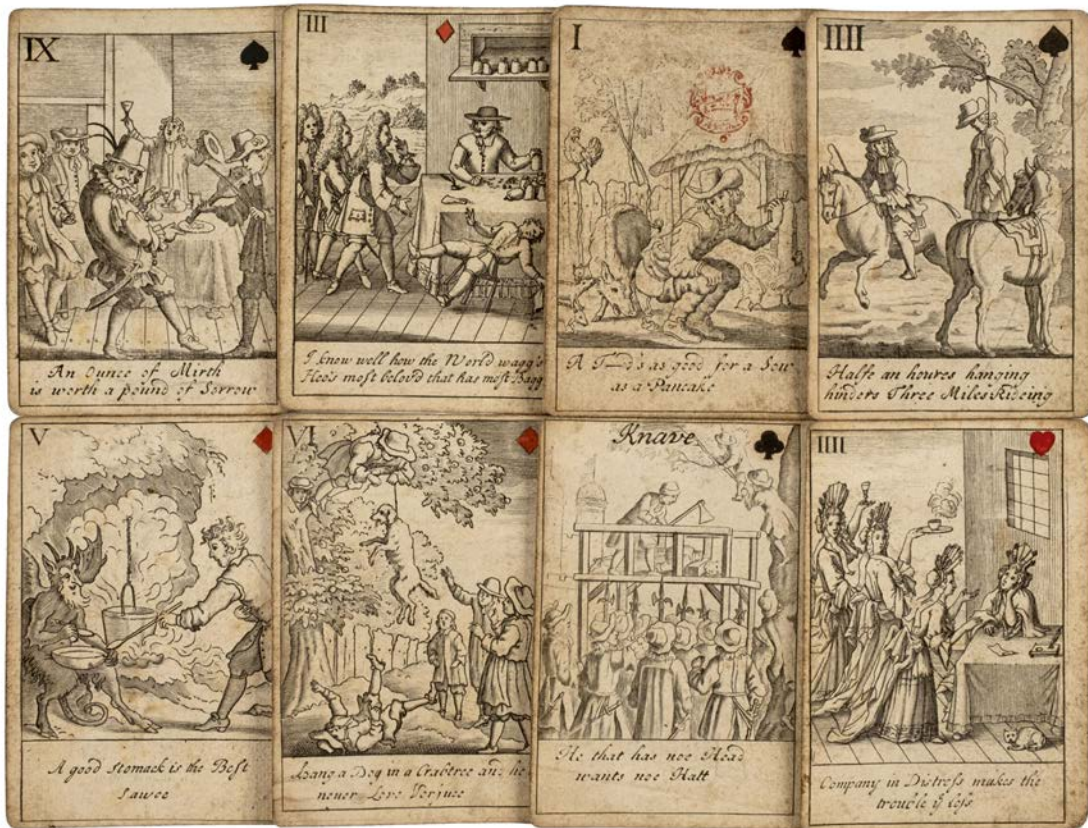 IX
An Ounce of Mirth
is worth a pound of Sorrow
III
I know well how the World wagg's
Hee's most belov'd that has most Bagg
I
A T—d's as good for a Sow
as a Pancake
IIII
Halfe an houres hanging
hinders Three Miles Rideing
V
A good stomack is the Best
Sawce
VI
Hang a Dog in a Crabtree and he
never Love Verjuce
Knave
He that has noe Head
wants noe Hatt
IIII
Company in Distress makes the
trouble ye less